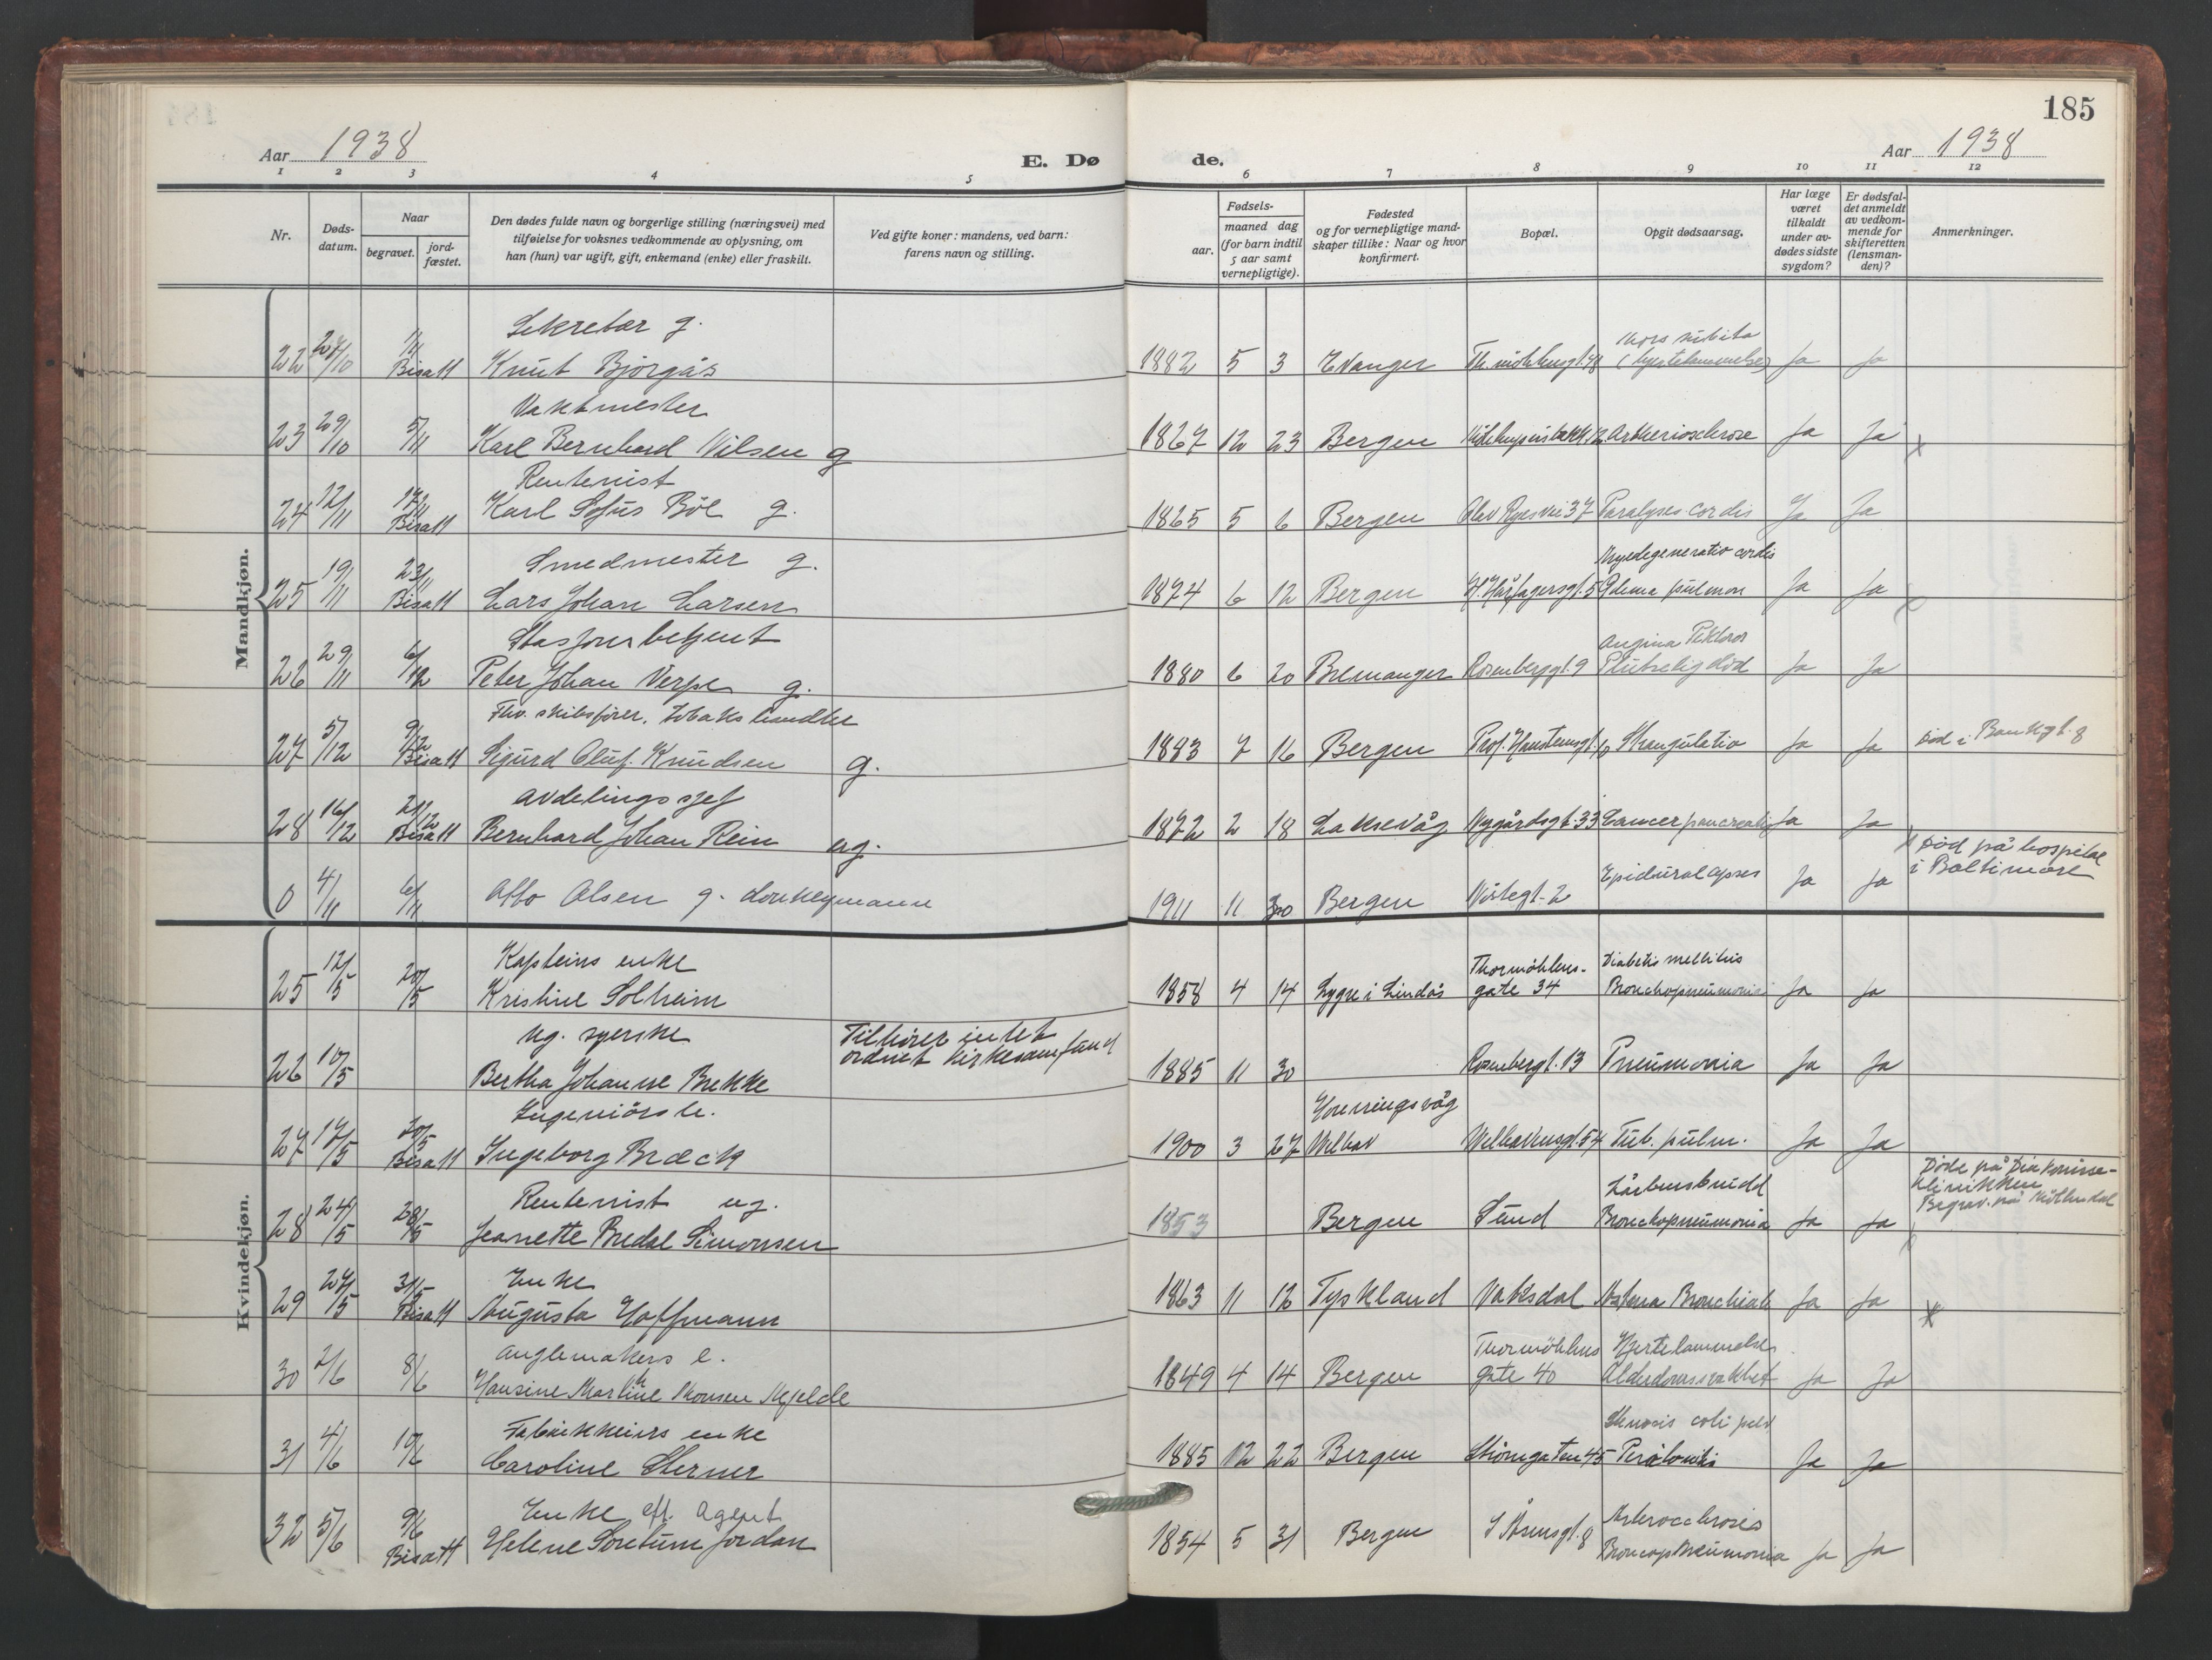 185
Aar 1938
E. Døde.
Aar 1938
1 2 3 4 5 6 7 8 9 10 11 12
Nr.
Døds-datum.
Naar
begravet.
jord-fæstet.
Den dødes fulde navn og borgerlige stilling (næringsvei) med
tilføielse for voksnes vedkommende av oplysning, om
han (hun) var ugift, gift, enkemand (enke) eller fraskilt.
Ved gifte koner: mandens, ved barn:
farens navn og stilling.
Fødsels-
aar.
maaned dag
(for barn indtil
5 aar samt
vernepligtige).
Fødested
og for vernepligtige mand-
skaper tillike: Naar og hvor
konfirmert.
Bopæl.
Opgit dødsaarsag.
Har læge
været
tilkaldt
under av-
dødes sidste
sygdom?
Er dødsfal-
det anmeldt
av vedkom-
mende for
skifteretten
(lensman-
den)?
Anmerkninger.
Mandkjøn.
Sekretær g.
22 1/11 Bisatt Knut Bjørgås 1882 5 3 Evanger (hjertelammelse) Ja Ja
Vaktmester
23 29/10 5/11 Karl Bernhard Nilsen g 1867 12 23 Bergen Artheriosclerose Ja Ja x
Rentenist
24 12/11 17/11 Bisatt Karl Sofus Böe g. 1865 5 6 Bergen Olav Ryes vei 37 Paralyses cordis Ja Ja
Smedmester g. Myodegeneratio cordis
25 19/11 23/11 Bisatt Lars Johan Larsen 1874 6 12 Bergen H. Hårfagersgt. 5 Ødema pulmon Ja Ja
Stasjonsbetjent Angina Pektoror
26 29/11 6/12 Peter Johan Verpe g. 1880 6 20 Bremanger Rosenberggt. 9 Plutselig död Ja Ja
Fhv. skibsfører, tobakshandler
27 5/12 9/12 Bisatt Sigurd Oluf Knudsen g. 1883 7 16 Bergen Prof. Hansteensgt. 10 Strangulatio Ja Ja Död i Bankgt. 8
Avdelingssjef
28 16/12 21/12 Bisatt Bernhard Johan Rein ug. 1872 2 18 Laksevåg Nygårdsgt. 33 Cancer pancreatis Ja Ja
Död på hospital
i Baltimore
0 4/11 6/11 Otto Olsen g. donkeymann 1911 11 30 Bergen Nöstegt. 2 Epidural Ja Ja
Kvindekjøn.
Kapteins enke Thormöhlens- Diabetis mellitus
25 12/5 20/5 Kristine Solheim 1858 4 14 Lygre i Lindås gate 34 Bronchopneumonia Ja Ja
ug. syerske Tilhører intet
ordnet kirkesamfund
26 10/5 Bertha Johanne Brekke 1885 11 30 Rosenbergt. 13 Pneumonia Ja Ja
Ingeniörs h. Honningsvåg
27 17/5 20/5 Bisatt Ingeborg Bræck 1900 3 27 Welhavensgt. 54 Tub. pulm. Ja Ja
Rentenist ug. Lårbensbrudd Döde på Diakonisse-
klinikken
28 24/5 28/5 Jeanette Bredal Simonsen 1853 Bergen Sund Bronchopneumonia Ja Ja Begrav. på Möllendal
Enke
29 27/5 31/5 Bisatt Augusta Hoffmann 1863 11 12 Tyskland Vaksdal Astma Bronchiale Ja Ja x
Anglemakers e. Thormöhlens Hjertelammelse
30 2/6 8/6 Hansine Martine Monsen Mjelde 1849 4 14 Bergen gate 40 Alderdomssvakhet Ja Ja
Fabrikkeiers enke Stenosis coli
31 4/6 10/6 Caroline Sterner 1885 12 22 Bergen Strömgaten 45 Ja Ja
Enke eft. Agent
32 5/6 9/6 Bisatt Helene Soretune Jordan 1854 5 31 Bergen Broncopneumonia Ja Ja